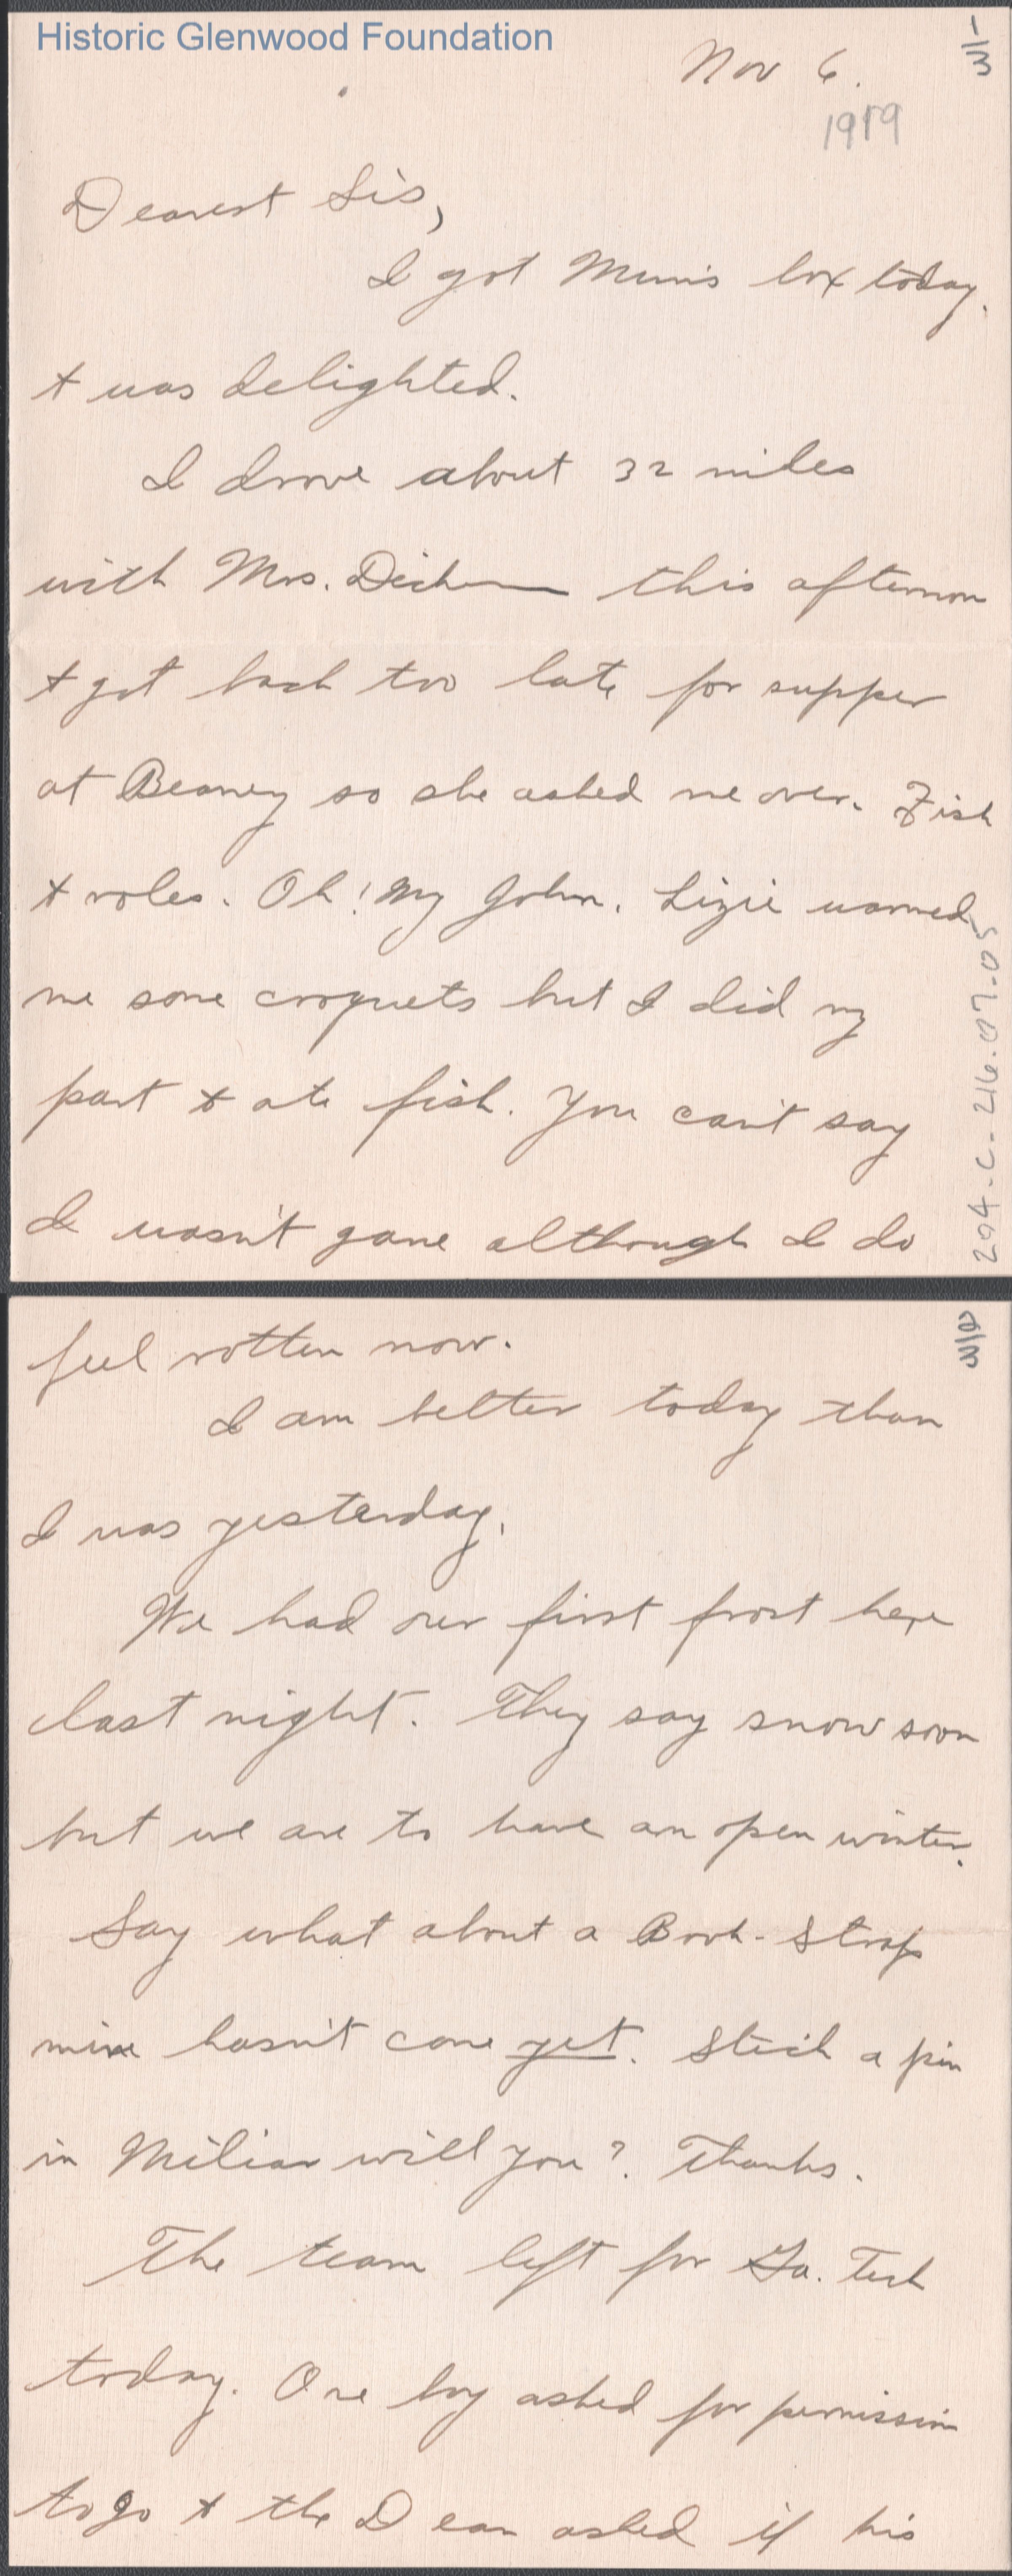 Historic Glenwood Foundation
1/3
Nov 6.
1919
Dearest Sis,
I got Mum's box today.
+ was delighted.
I drove about 32 miles
with Mrs. this afternoon
+ got back too late for supper
at Beaney so she asked me over. Fish
+ roles. Oh! My John. Lizie warmed
me some croquets but I did my
part + ate fish. You can't say
I wasn't game although I do
204-C-216.07.05
feel rotten now.
2/3
I am better today than
I was yesterday.
We had our first frost here
last night. They say snow soon
but we are to have an open winter.
Say what about a Book-Strap
mine hasn't come yet. Stick a pin
in will you? Thanks.
The team left for Ga. Tech
today. One boy asked for permission
to go + the Dean asked if his